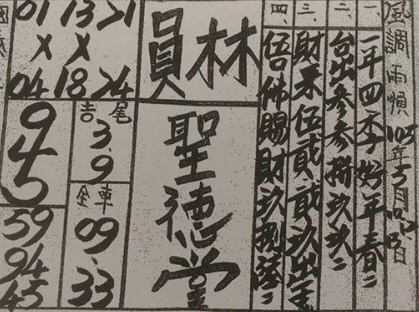 風調雨順 105年5月
一、一年四季好年春二
二、台出參參捌玖玖二
三、財來伍貳貳玖出
四、伍仟賜財玖捌陸二
員林
聖德堂
01 13 21
X X
04 18 24
吉尾
3.9
全車
09.33
945
59
94
45